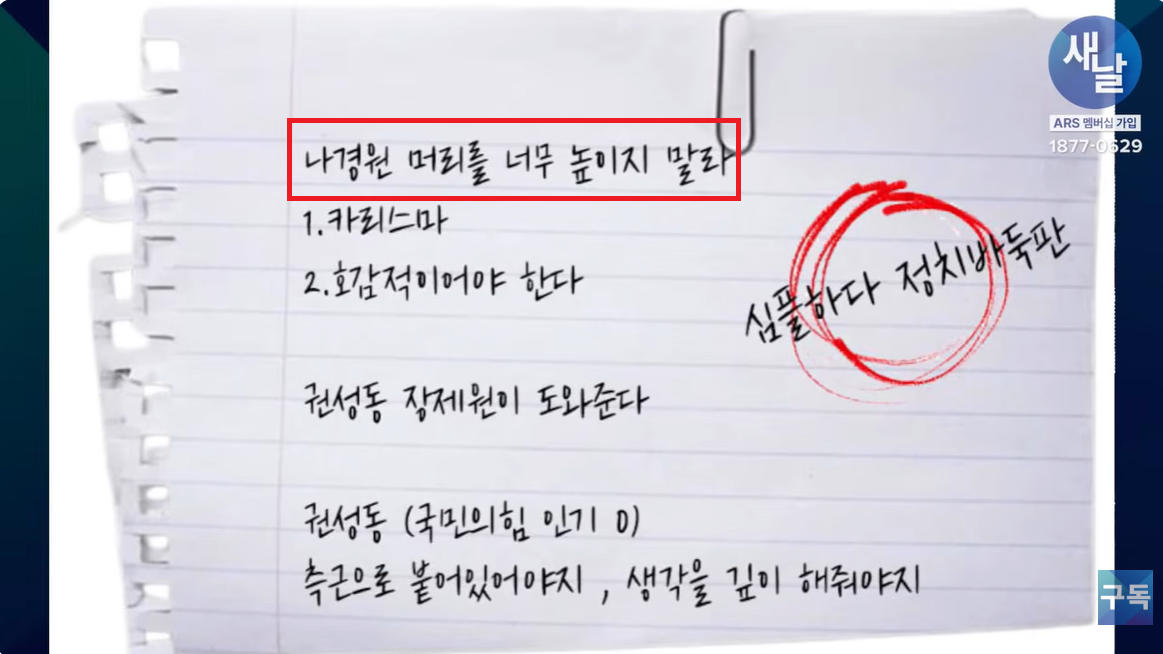 새날
ARS 멤버십 가입
1877-0629
나경원 머리를 너무 높이지 말라
1.카리스마
2.호감적이어야 한다
심플하다 정치바둑판
권성동 장제원이 도와준다
권성동 (국민의힘 인기 0)
측근으로 붙어있어야지 , 생각을 깊이 해줘야지
구독